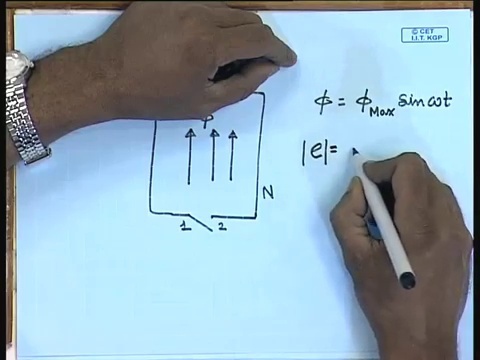 © CET
I.I.T. KGP
ϕ = ϕ_Max sin ωt
|e| =
N
1 2